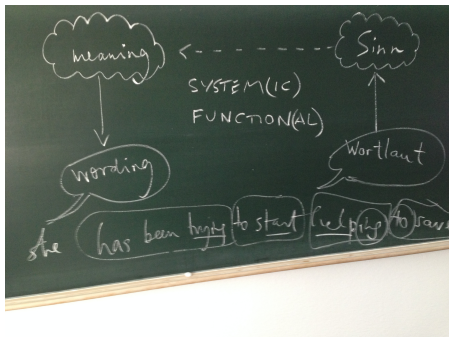 meaning Sinn
SYSTEM(IC)
FUNCTION(AL)
wording Wortlaut
she has been trying to start helping to save